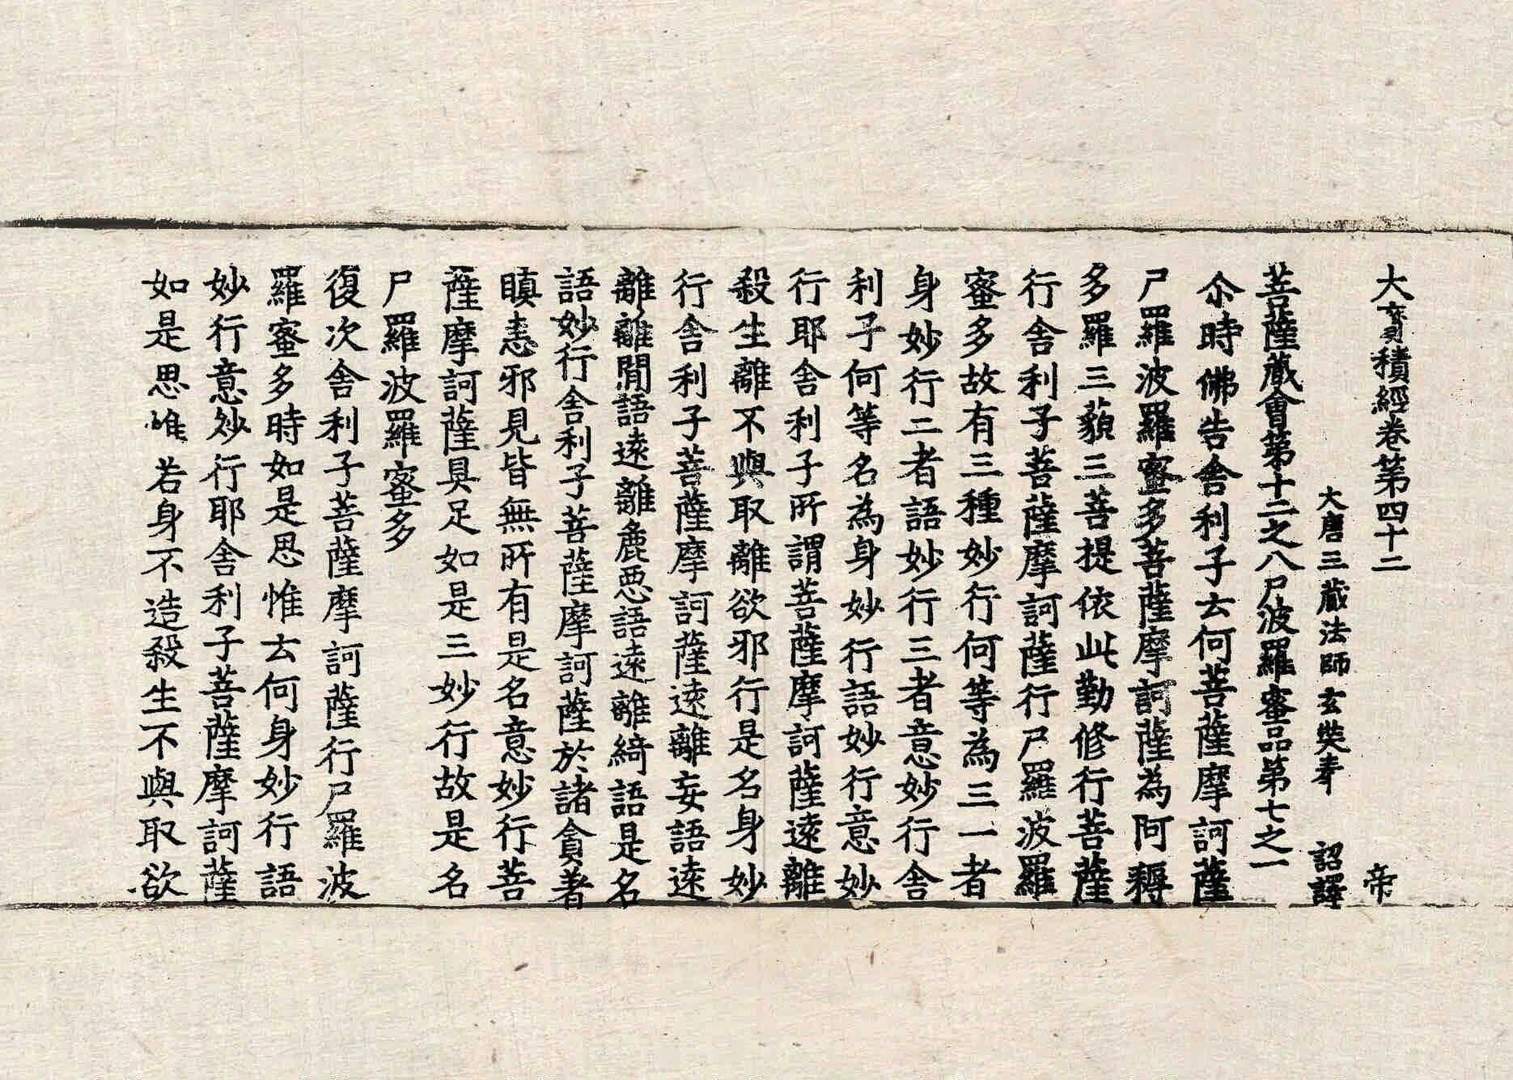 大寳積經卷第四十二 帝
大唐三藏法師玄奘奉 詔譯
菩薩藏會第十二之八尸波羅蜜品第七之一
尒時佛告舍利子云何菩薩摩訶薩
尸羅波羅蜜多菩薩摩訶薩為阿耨
多羅三藐三菩提依此勤修行菩薩
行舍利子菩薩摩訶薩行尸羅波羅
蜜多故有三種妙行何等為三一者
身妙行二者語妙行三者意妙行舍
利子何等名為身妙行語妙行意妙
行耶舍利子所謂菩薩摩訶薩遠離
殺生離不與取離欲邪行是名身妙
行舍利子菩薩摩訶薩遠離妄語遠
離離閒語遠離麁惡語遠離綺語是名
語妙行舍利子菩薩摩訶薩於諸貪著
瞋恚邪見皆無所有是名意妙行菩
薩摩訶薩具足如是三妙行故是名
尸羅波羅蜜多
復次舍利子菩薩摩訶薩行尸羅波
羅蜜多時如是思惟云何身妙行語
妙行意妙行耶舍利子菩薩摩訶薩
如是思惟若身不造殺生不與取欲